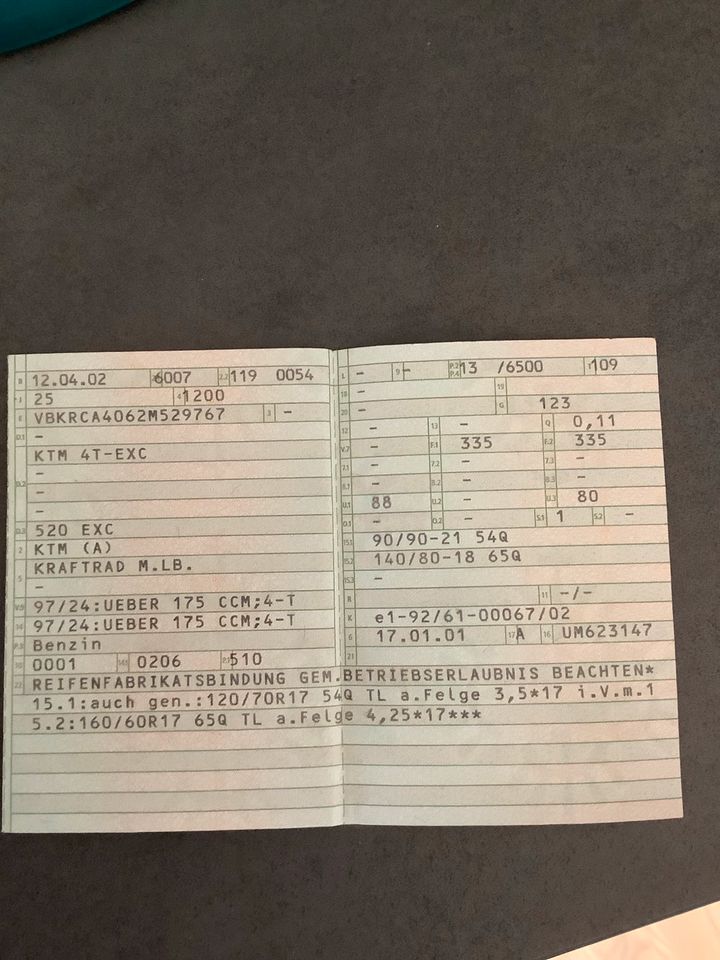 B 12.04.02 6007 2.2 119 0054
J 25 4 1200
E VBKRCA4062M529767 3 -
D.1 -
KTM 4T-EXC
-
D.2 -
-
D.3 520 EXC
2 KTM (A)
5 KRAFTRAD M.LB.
-
V.9 97/24:UEBER 175 CCM;4-T
14 97/24:UEBER 175 CCM;4-T
P.3 Benzin
10 0001 14.1 0206 P.1 510
22 REIFENFABRIKATSBINDUNG GEM.BETRIEBSERLAUBNIS BEACHTEN*
15.1:auch gen.:120/70R17 54Q TL a.Felge 3,5*17 i.V.m.1
5.2:160/60R17 65Q TL a.Felge 4,25*17***
L - 9 - P.2 P.4 13 /6500 T 109
18 - 19
20 - G 123
12 - 13 - Q 0,11
V.7 - F.1 335 F.2 335
7.1 - 7.2 - 7.3 -
8.1 - 8.2 - 8.3 -
U.1 88 U.2 - U.3 80
O.1 - O.2 - S.1 1 S.2 -
15.1 90/90-21 54Q
15.2 140/80-18 65Q
15.3 -
R 11 -/-
K e1-92/61-00067/02
6 17.01.01 17 A 16 UM623147
21